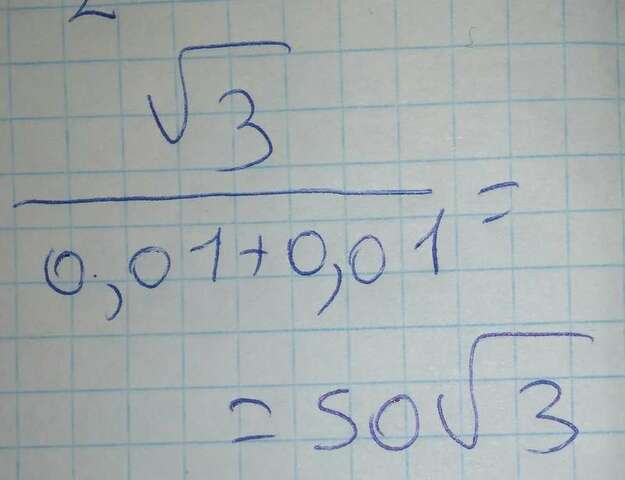 √3
0,01+0,01 =
= 50√3